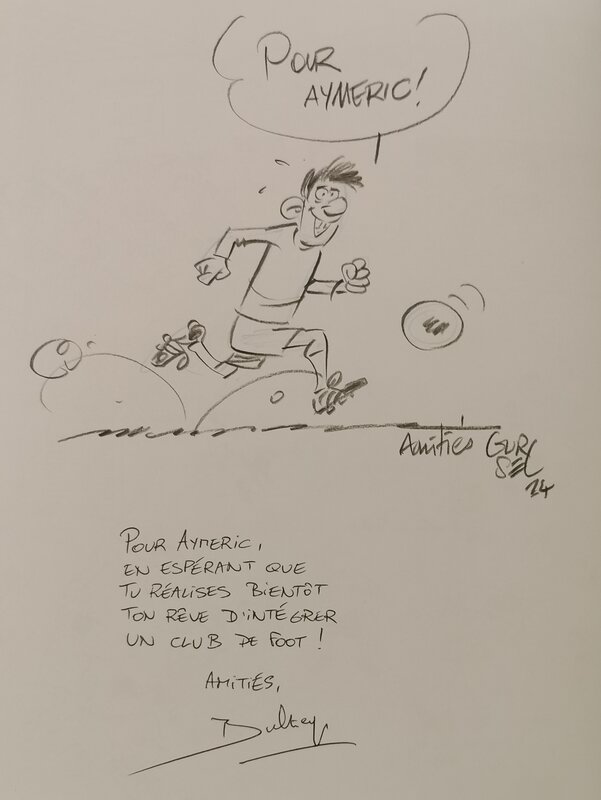 POUR
AYMERIC!
Amitiés GÜR
SEL
24
POUR AYMERIC,
EN ESPÉRANT QUE
TU RÉALISES BIENTÔT
TON RÊVE D'INTÉGRER
UN CLUB DE FOOT !
AMITIÉS,